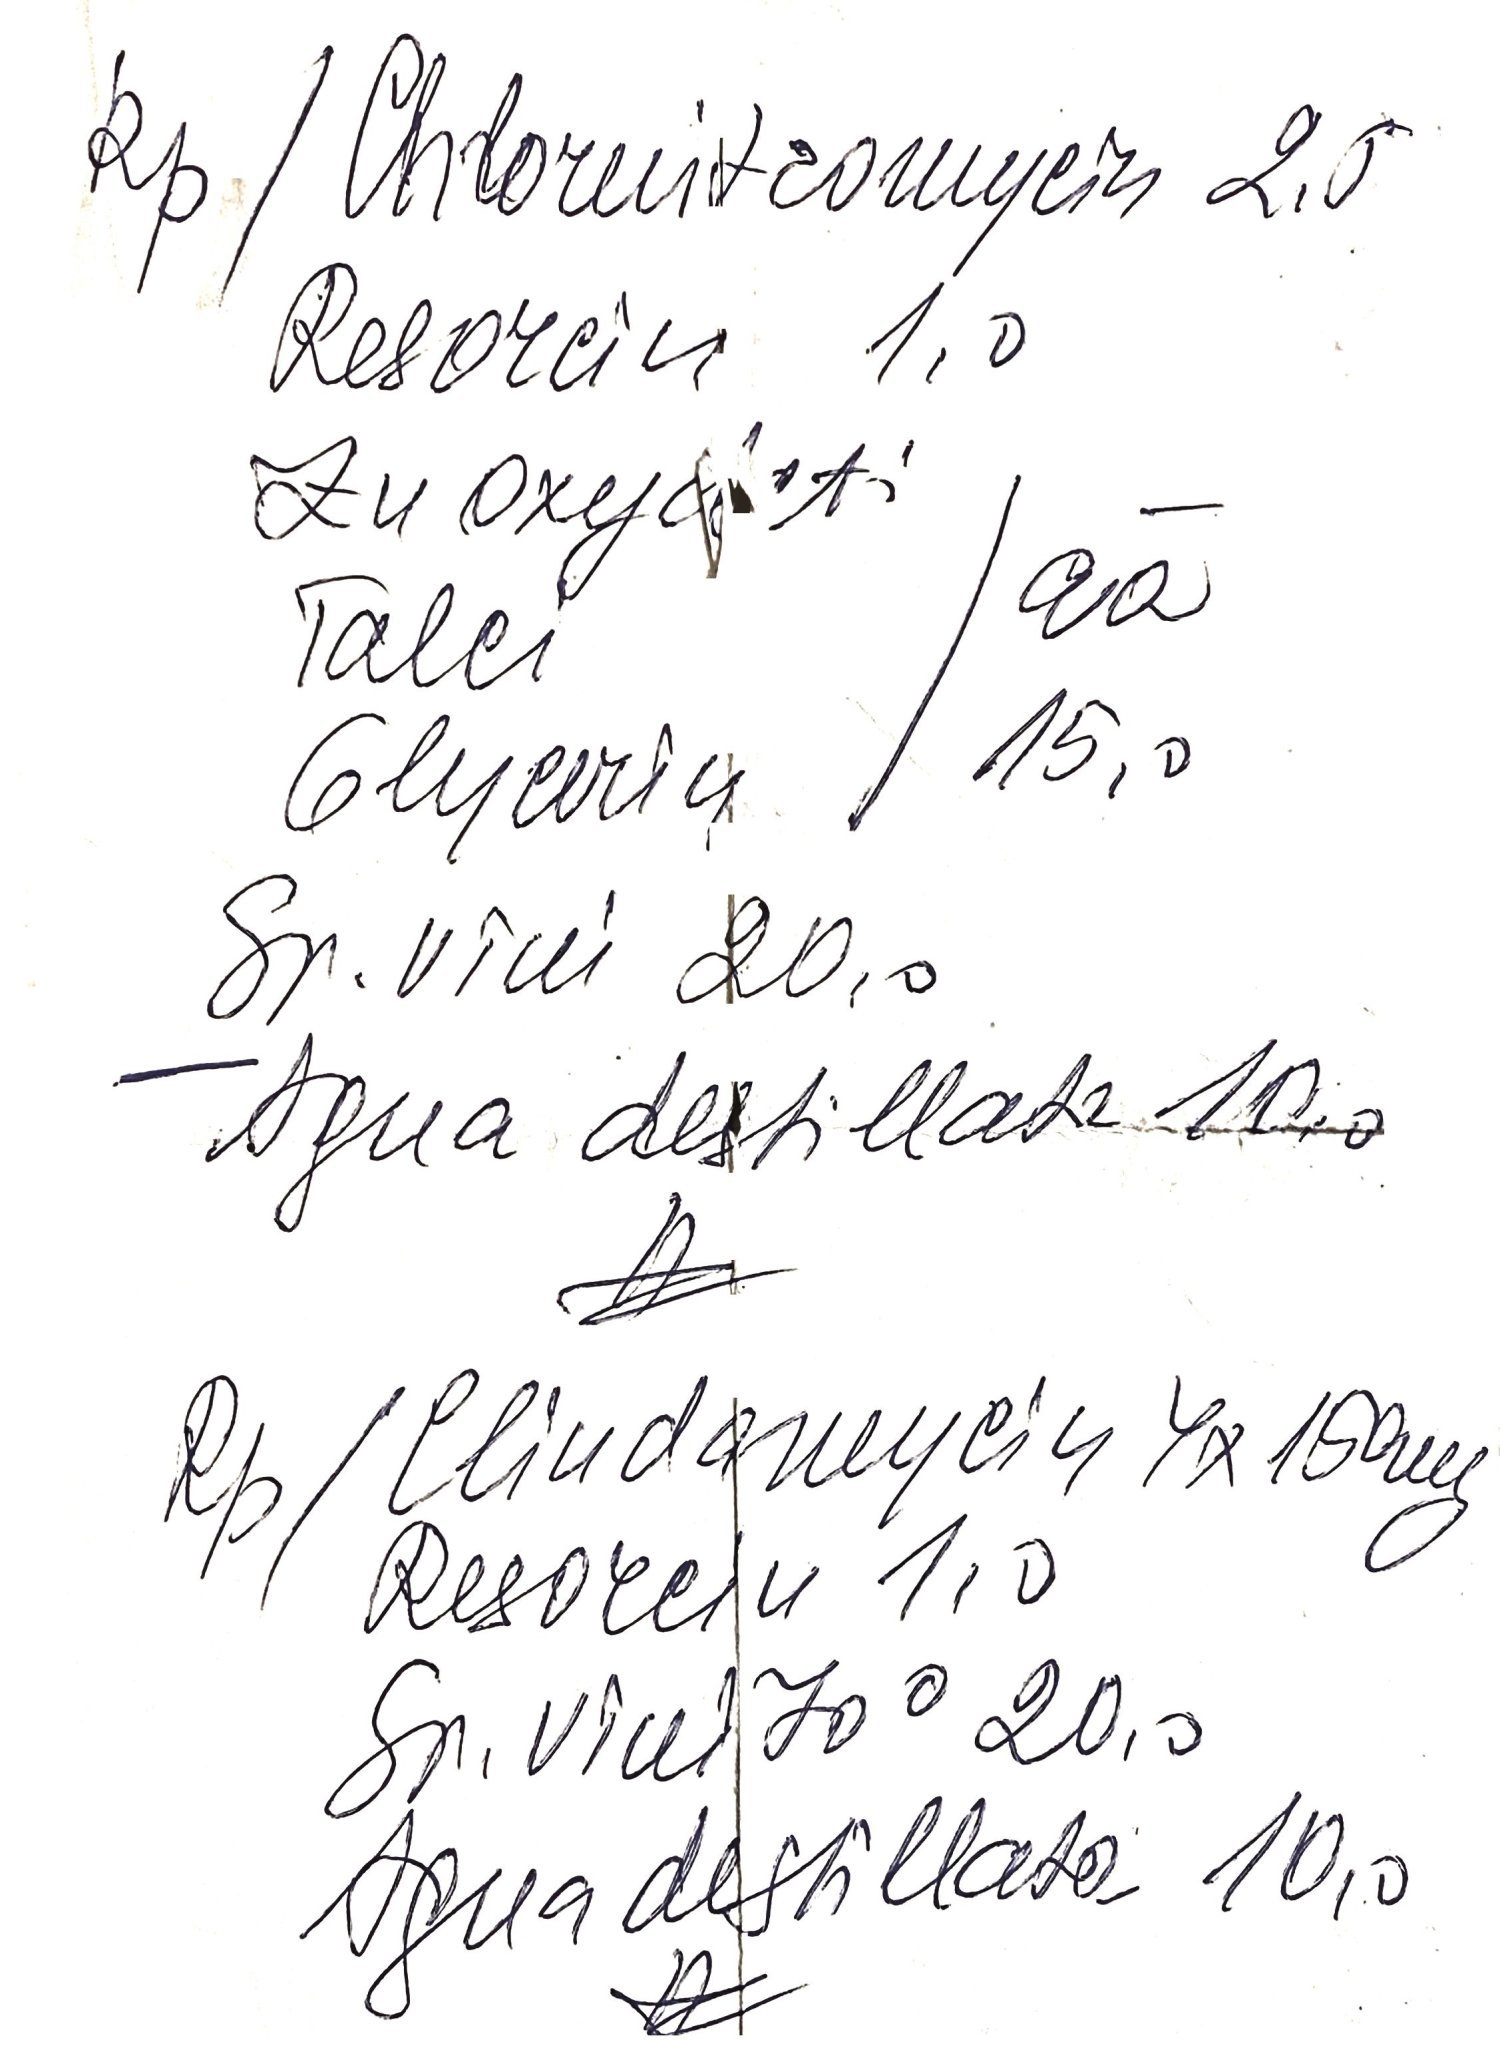 Rp/ Chlornitromycin 2.0
Resorcin 1,0
Zn oxydati
Talci / āā
Glycerin / 15,0
Sp. vini 20,0
Aqua destillata 10,0
Rp/ Clindamycin 4x150mg
Resorcin 1,0
Sp. vini 70° 20,0
Aqua destillata 10,0